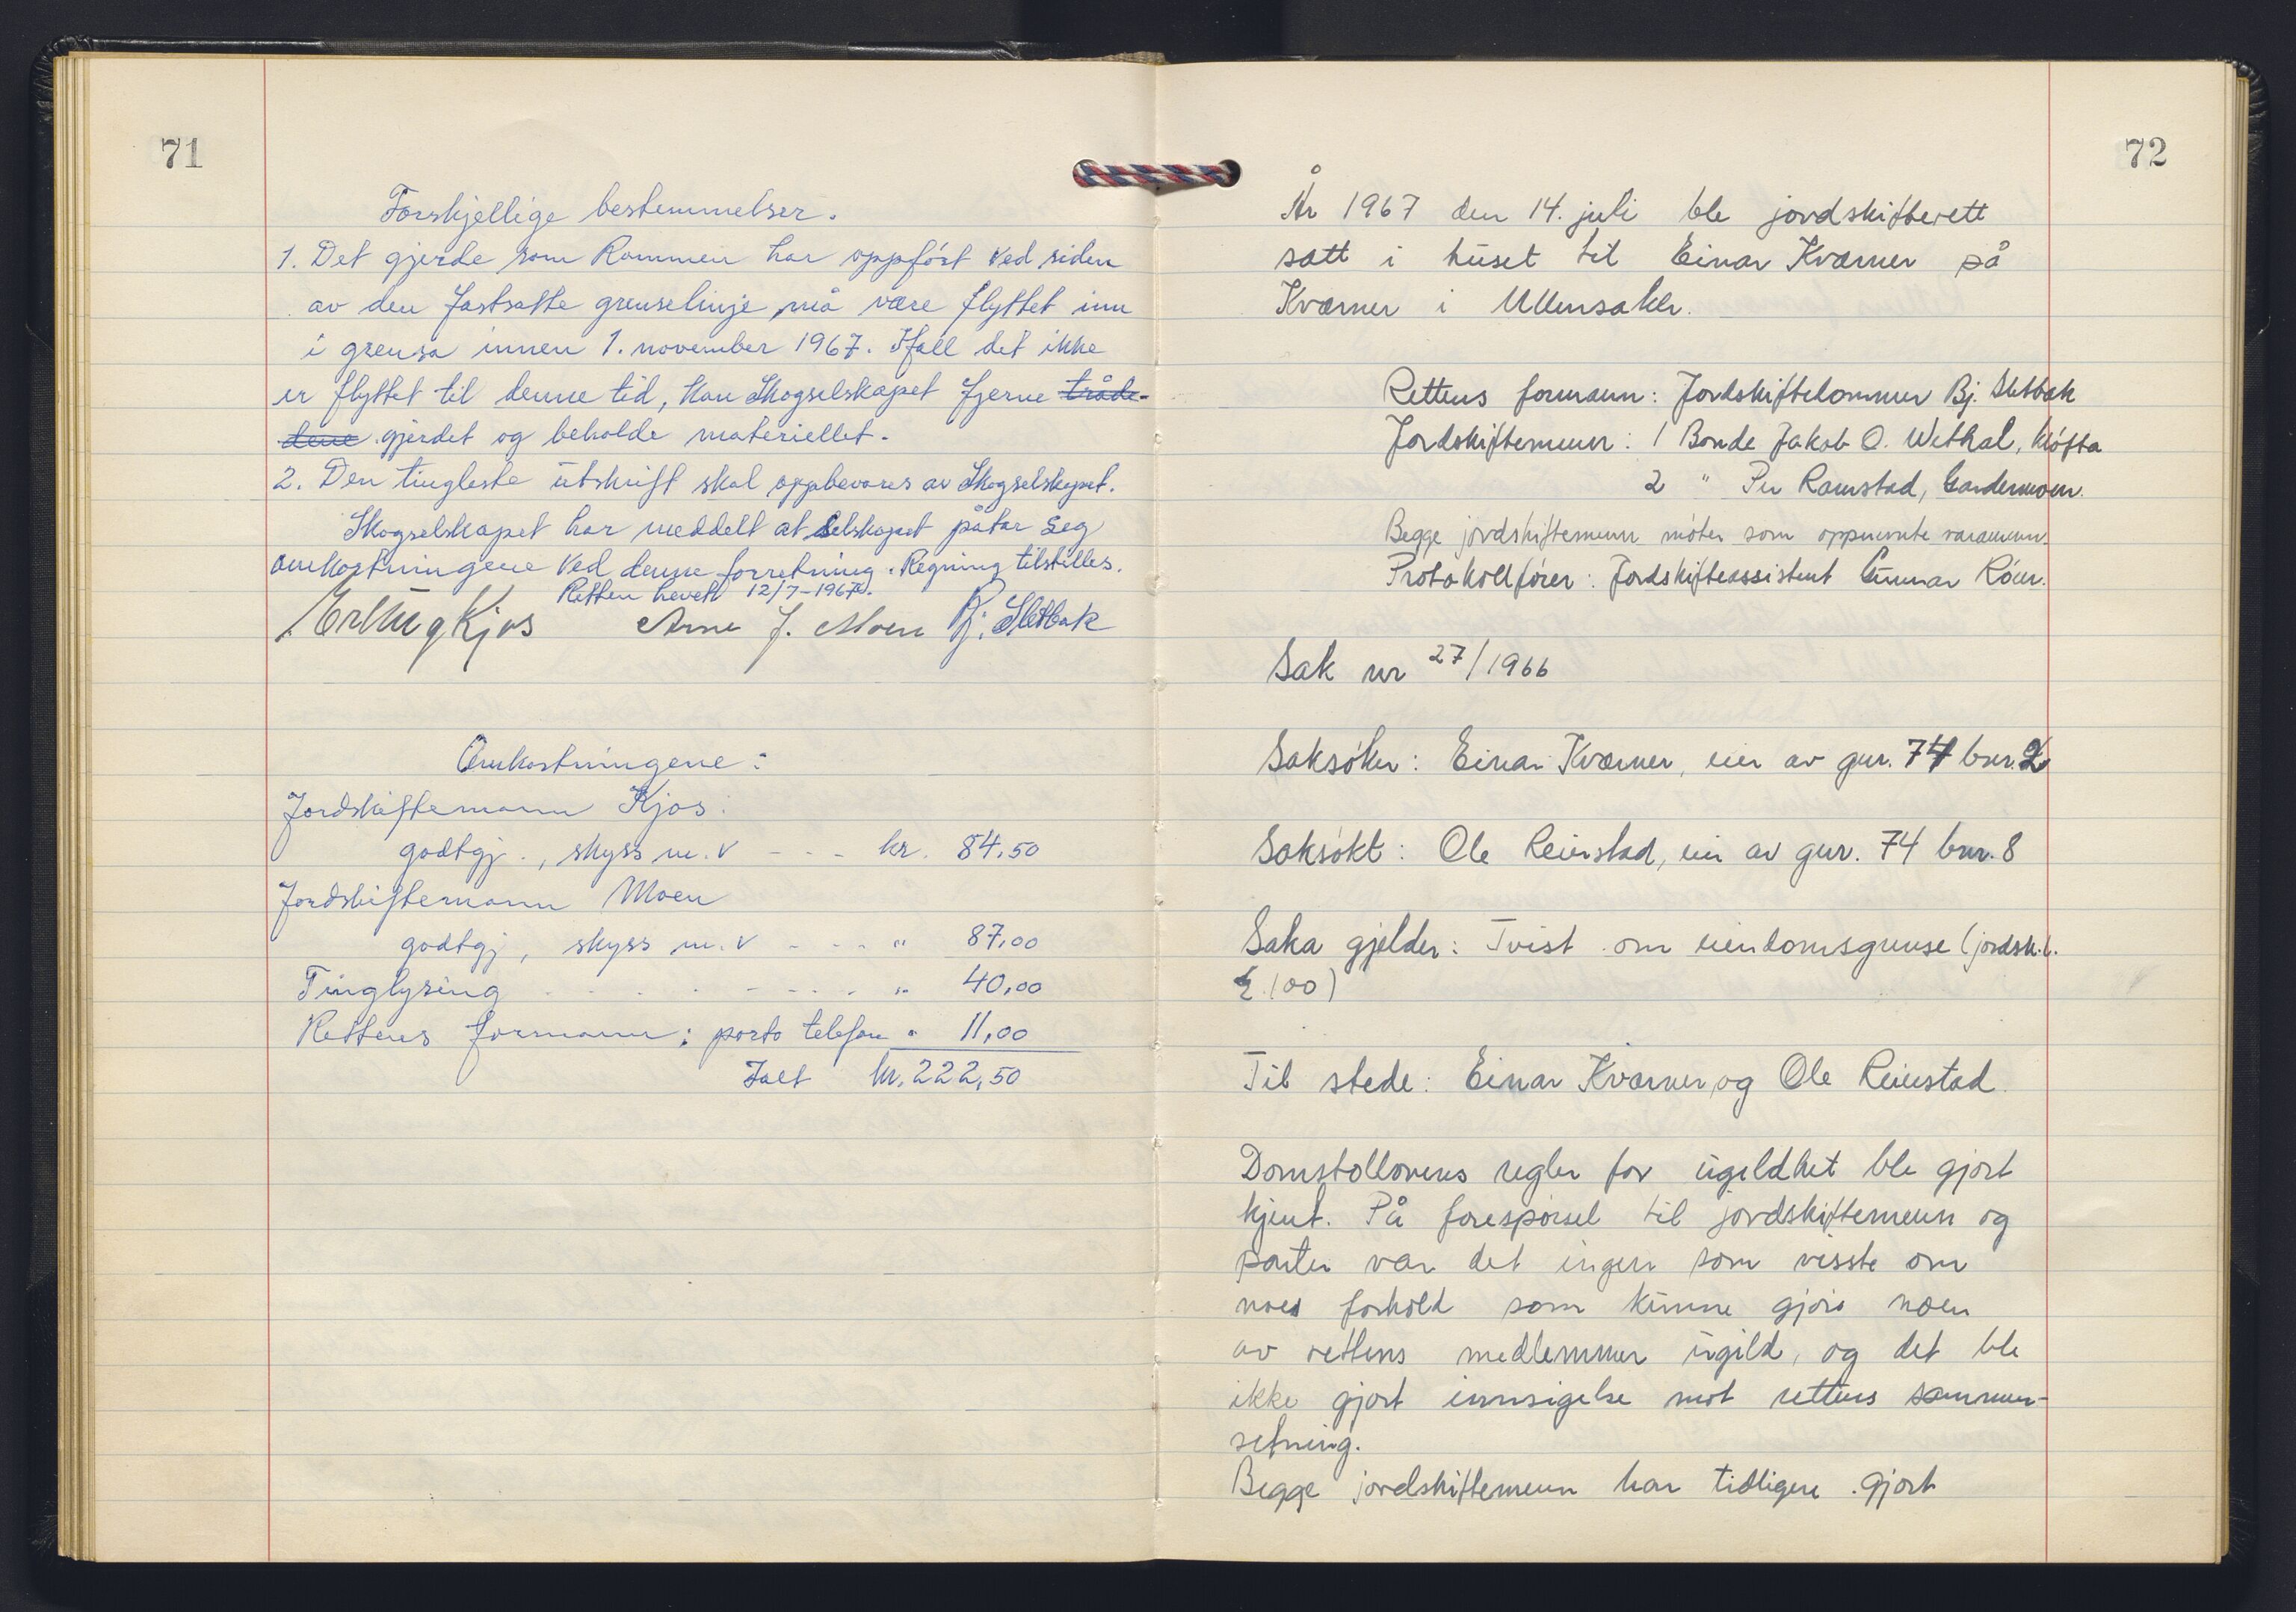 71
Forskjellige bestemmelser.
1. Det gjerde som Rommen har oppført ved siden
av den fastsatte grenselinje, må være flyttet inn
i grensa innen 1. november 1967. Ifall det ikke
er flyttet til denne tid, kan Skogselskapet fjerne tråde-
dene gjerdet og beholde materiellet.
2. Den tingleste utskrift skal oppbevares av Skogselskapet.
Skogselskapet har meddelt at selskapet påtar seg
omkostningene ved denne forretning. Regning tilstilles.
Retten hevet 12/7-1967.
Erling Kjos Arne J. Moen Bj. Sletbak
Omkostningene:
Jordskiftemann Kjos:
godtgj., skyss m.v - - - kr. 84,50
Jordskiftemann Moen
godtgj, skyss m.v - - - " 87,00
Tinglysing - - - - - - - " 40,00
Rettens formann: porto telefon " 11,00
Ialt kr. 222,50
72
År 1967 den 14. juli ble jordskifterett
satt i huset til Einar Kværner på
Kværner i Ullensaker.
Rettens formann: Jordskiftedommer Bj. Sletbak
Jordskiftemenn: 1 Bonde Jakob O. Wethal, Kløfta
2 " Per Ramstad, Gardermoen.
Begge jordskiftemenn møter som oppnevnte varamenn.
Protokollfører: Jordskifteassistent Gunnar Röer.
Sak nr 27/1966
Saksøker: Einar Kværner, eier av gnr. 74 bnr. 2
Saksøkt: Ole Reierstad, eier av gnr. 74 bnr. 8
Saka gjelder: Tvist om eiendomsgrense (jordsk.l.
§ 100)
Til stede: Einar Kværner og Ole Reierstad.
Domstollovens regler for ugildhet ble gjort
kjent. På forespørsel til jordskiftemenn og
parter var det ingen som visste om
noen forhold som kunne gjøre noen
av rettens medlemmer ugild, og det ble
ikke gjort innsigelse mot rettens sammen-
setning.
Begge jordskiftemenn har tidligere gjort